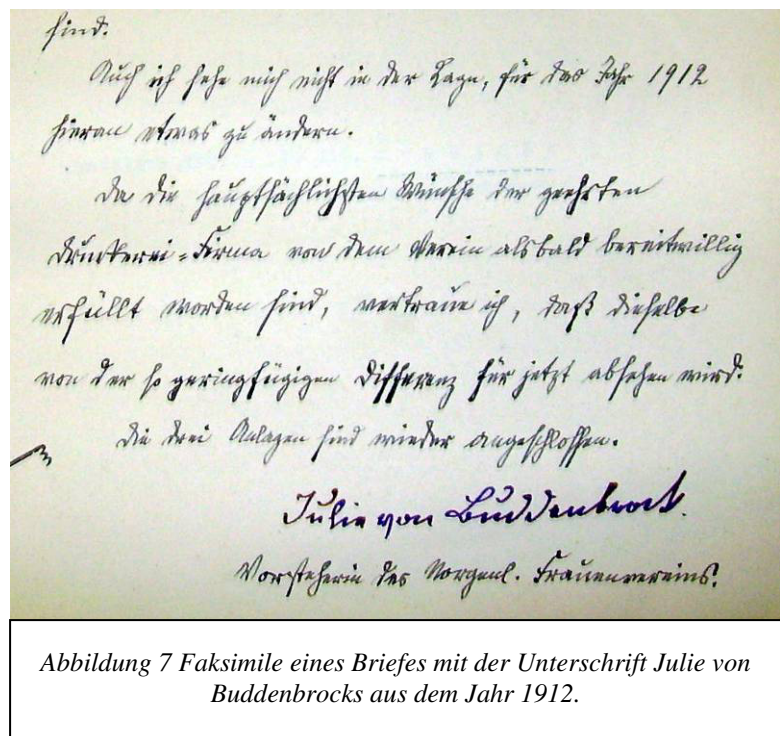 sind.
Auch ich sehe mich nicht in der Lage, für das Jahr 1912
hieran etwas zu ändern.
Da die hauptsächlichsten Wünsche der geehrten
Druckerei-Firma von dem Verein alsbald bereitwillig
erfüllt worden sind, vertraue ich, daß dieselbe
von der so geringfügigen Differenz für jetzt absehen wird.
Die drei Anlagen sind wieder angeschlossen.
Julie von Buddenbrock.
Vorsteherin des Morgenl. Frauenvereins.
Abbildung 7 Faksimile eines Briefes mit der Unterschrift Julie von
Buddenbrocks aus dem Jahr 1912.